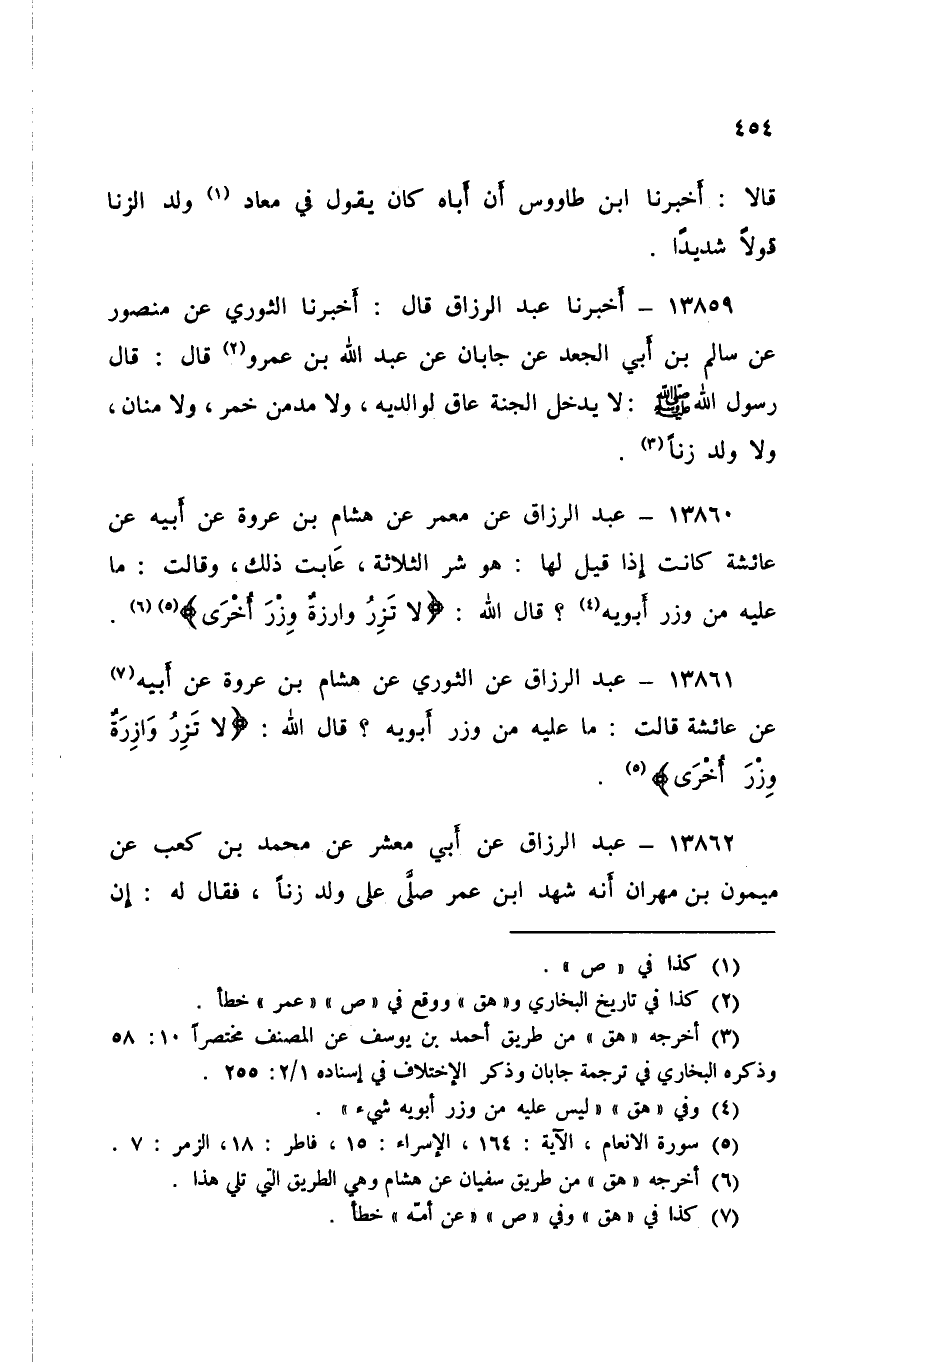 ٤٥٤
قالا : أَخبرنا ابن طاووس أَن أَباه كان يقول في معاد (١) ولد الزنا
قولاً شديدًا .
١٣٨٥٩ - أَخبرنا عبد الرزاق قال : أَخبرنا الثوري عن منصور
عن سالم بن أَبي الجعد عن جابان عن عبد الله بن عمرو(٢) قال : قال
رسول الله ﷺ : لا يدخل الجنة عاق لوالديه ، ولا مدمن خمر ، ولا منان ،
ولا ولد زناً(٣) .
١٣٨٦٠ - عبد الرزاق عن معمر عن هشام بن عروة عن أَبيه عن
عائشة كانت إذا قيل لها : هو شر الثلاثة ، عَابت ذلك ، وقالت : ما
عليه من وزر أَبويه(٤) ؟ قال الله : ﴿لا تَزِرُ وارزةٌ وِزْرَ أُخْرَى﴾(٥) (٦) .
١٣٨٦١ - عبد الرزاق عن الثوري عن هشام بن عروة عن أَبيه(٧)
عن عائشة قالت : ما عليه من وزر أَبويه ؟ قال الله : ﴿لا تَزِرُ وَازِرَةٌ
وِزْرَ أُخْرَى﴾(٥) .
١٣٨٦٢ - عبد الرزاق عن أَبي معشر عن محمد بن كعب عن
ميمون بن مهران أَنه شهد ابن عمر صلَّى على ولد زناً ، فقال له : إن
(١) كذا في « ص » .
(٢) كذا في تاريخ البخاري و« هق » ووقع في « ص » « عمر » خطأ .
(٣) أخرجه « هق » من طريق أحمد بن يوسف عن المصنف مختصراً ١٠ : ٥٨
وذكره البخاري في ترجمة جابان وذكر الإختلاف في إسناده ٢/١ : ٢٥٥ .
(٤) وفي « هق » « ليس عليه من وزر أبويه شيء » .
(٥) سورة الانعام ، الآية : ١٦٤ ، الإسراء : ١٥ ، فاطر : ١٨ ، الزمر : ٧ .
(٦) أخرجه « هق » من طريق سفيان عن هشام وهي الطريق التي تلي هذا .
(٧) كذا في « هق » وفي « ص » « عن أمّه » خطأ .